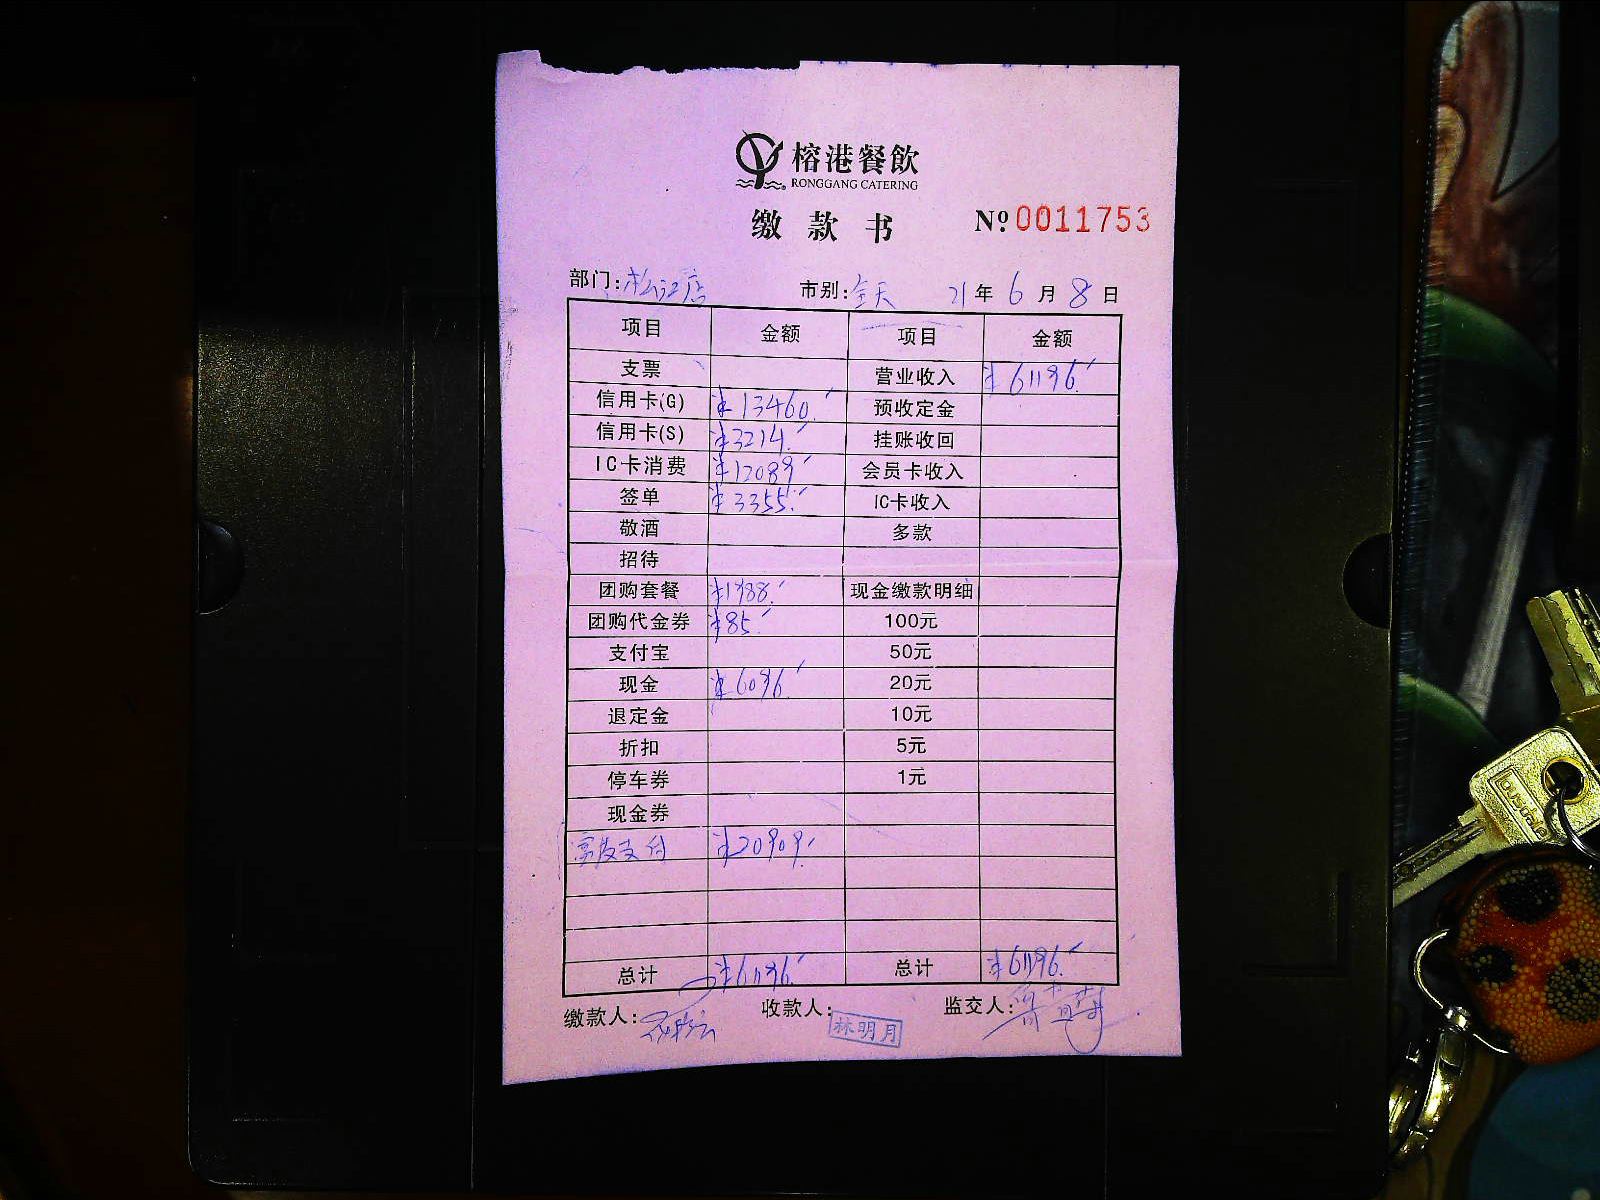 榕港餐飲
RONGGANG CATERING
缴款书 Nº 0011753
部门:松江店 市别:全天 21年6月8日
项目 金额 项目 金额
支票 营业收入 ¥61196.
信用卡(G) ¥13460. 预收定金
信用卡(S) ¥3214. 挂账收回
IC卡消费 ¥12089 会员卡收入
签单 ¥3355. IC卡收入
敬酒 多款
招待
团购套餐 ¥1988. 现金缴款明细
团购代金券 ¥85. 100元
支付宝 50元
现金 ¥6096. 20元
退定金 10元
折扣 5元
停车券 1元
现金券
支付 ¥20909.
总计 ¥61196. 总计 ¥61196.
缴款人: 收款人: 林明月 监交人: